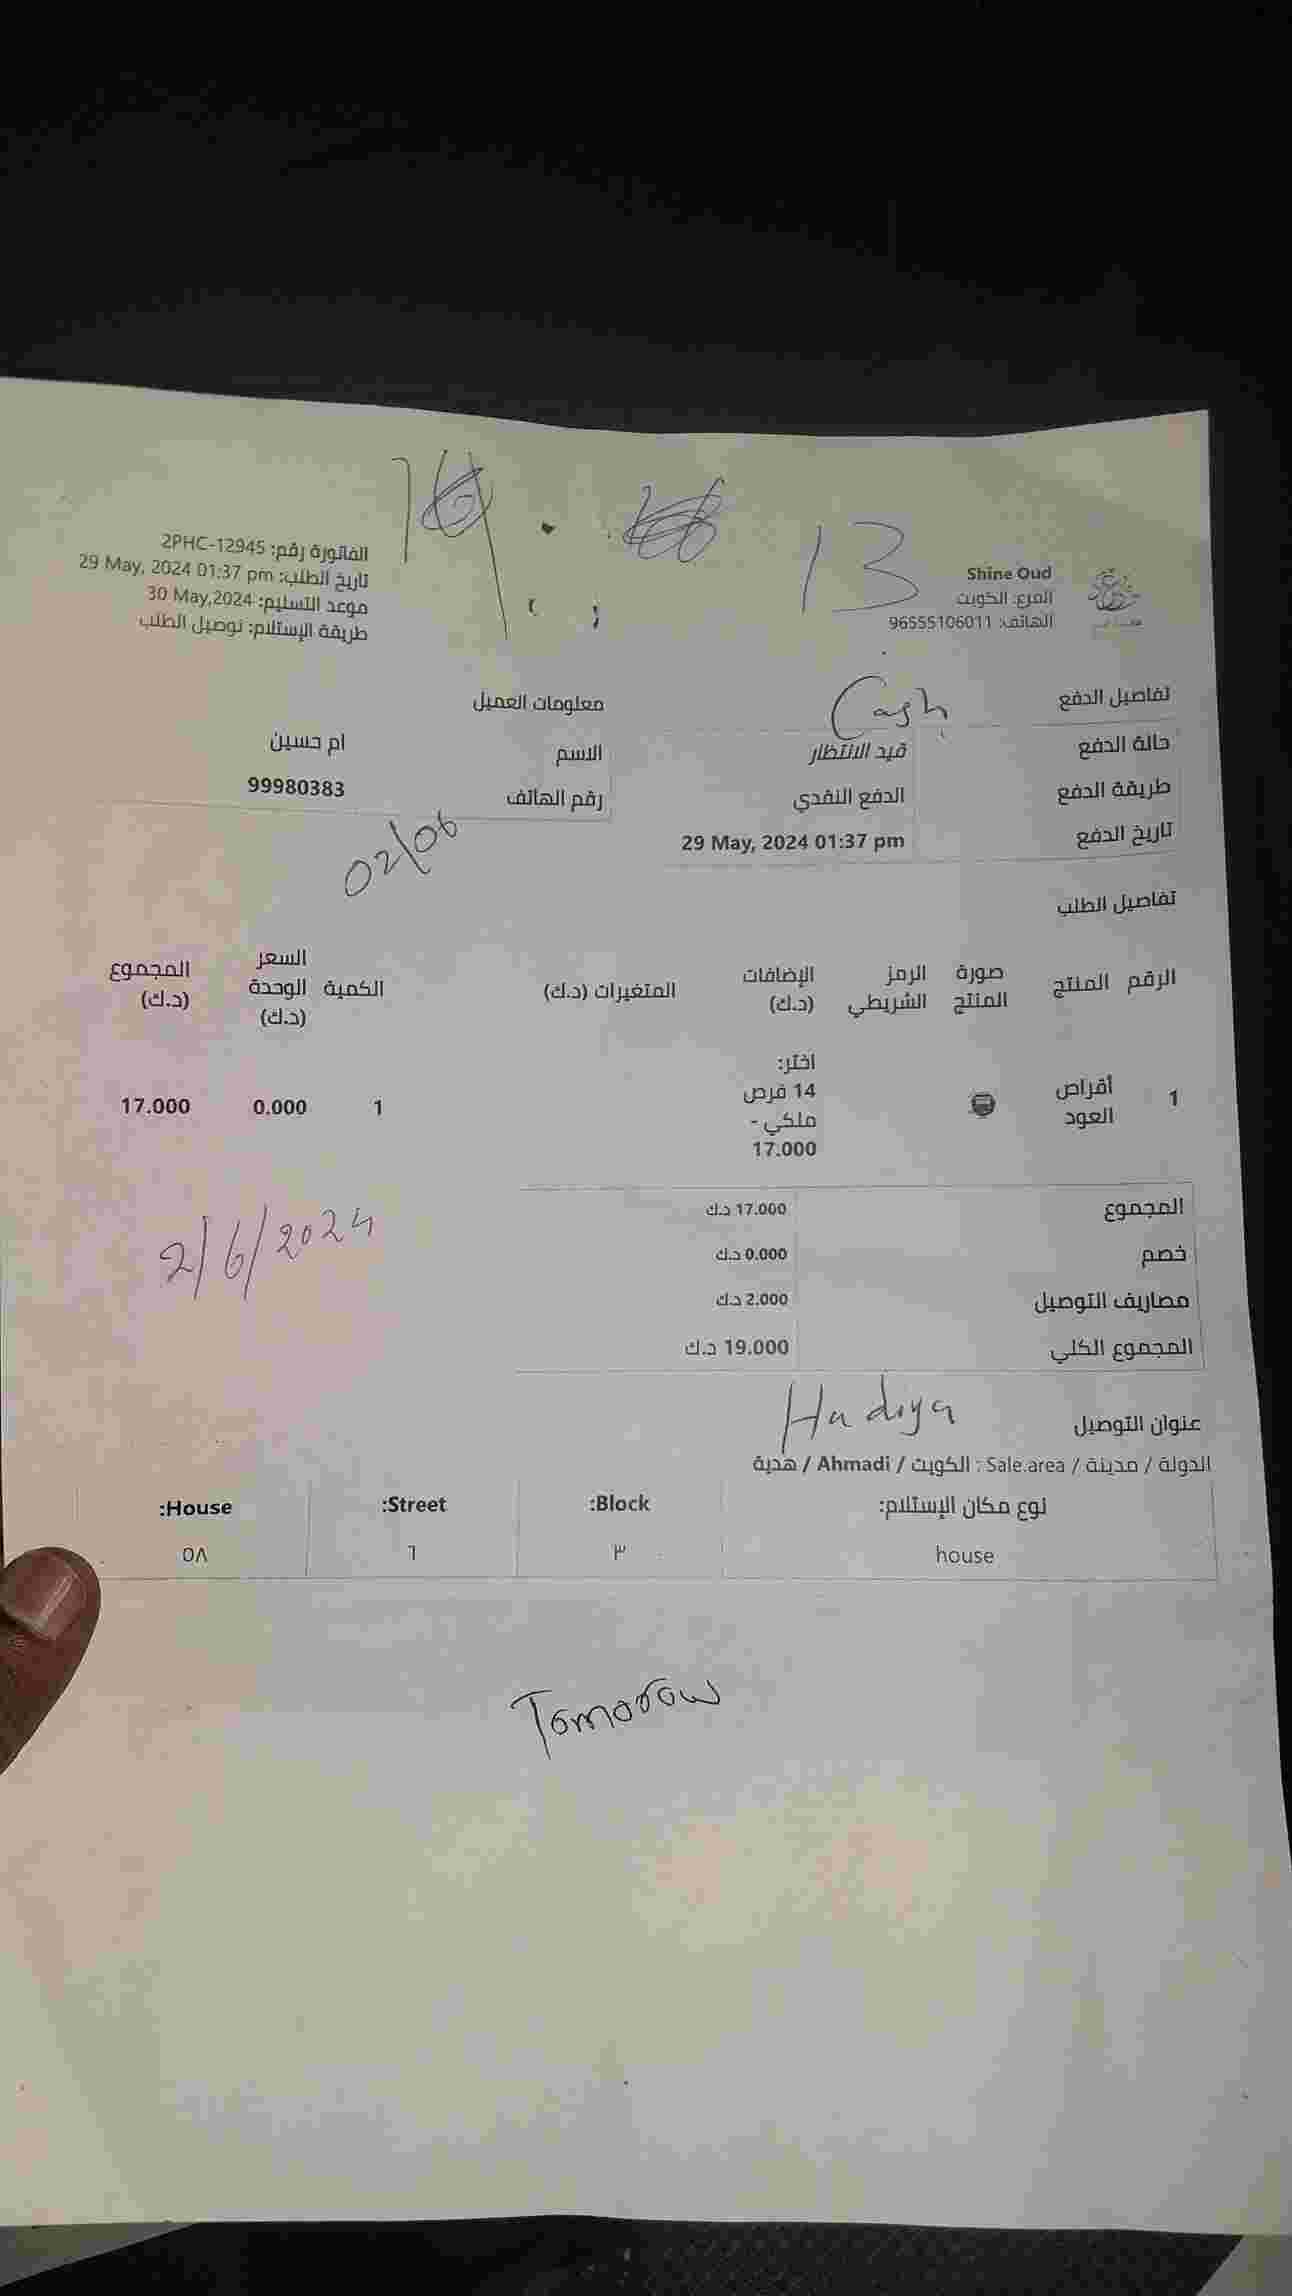 13
Shine Oud
الفرع: الكويت
الهاتف: 96555106011
الفاتورة رقم: 2PHC-12945
تاريخ الطلب: 29 May, 2024 01:37 pm
موعد التسليم: 30 May,2024
طريقة الإستلام: توصيل الطلب
Cash
تفاصيل الدفع
حالة الدفع قيد الانتظار
طريقة الدفع الدفع النقدي
تاريخ الدفع 29 May, 2024 01:37 pm
معلومات العميل
الاسم ام حسين
رقم الهاتف 99980383
02/06
تفاصيل الطلب
الرقم المنتج صورة المنتج الرمز الشريطي الإضافات (د.ك) المتغيرات (د.ك) الكمية السعر الوحدة (د.ك) المجموع (د.ك)
1 أقراص العود اختر: 14 قرص ملكي - 17.000 1 0.000 17.000
المجموع 17.000 د.ك
خصم 0.000 د.ك
مصاريف التوصيل 2.000 د.ك
المجموع الكلي 19.000 د.ك
2/6/2024
Hadiya
عنوان التوصيل
الدولة / مدينة / Sale.area : الكويت / Ahmadi / هدية
نوع مكان الإستلام: Block: Street: House:
house ٣ ٦ ٥٨
Tomorow